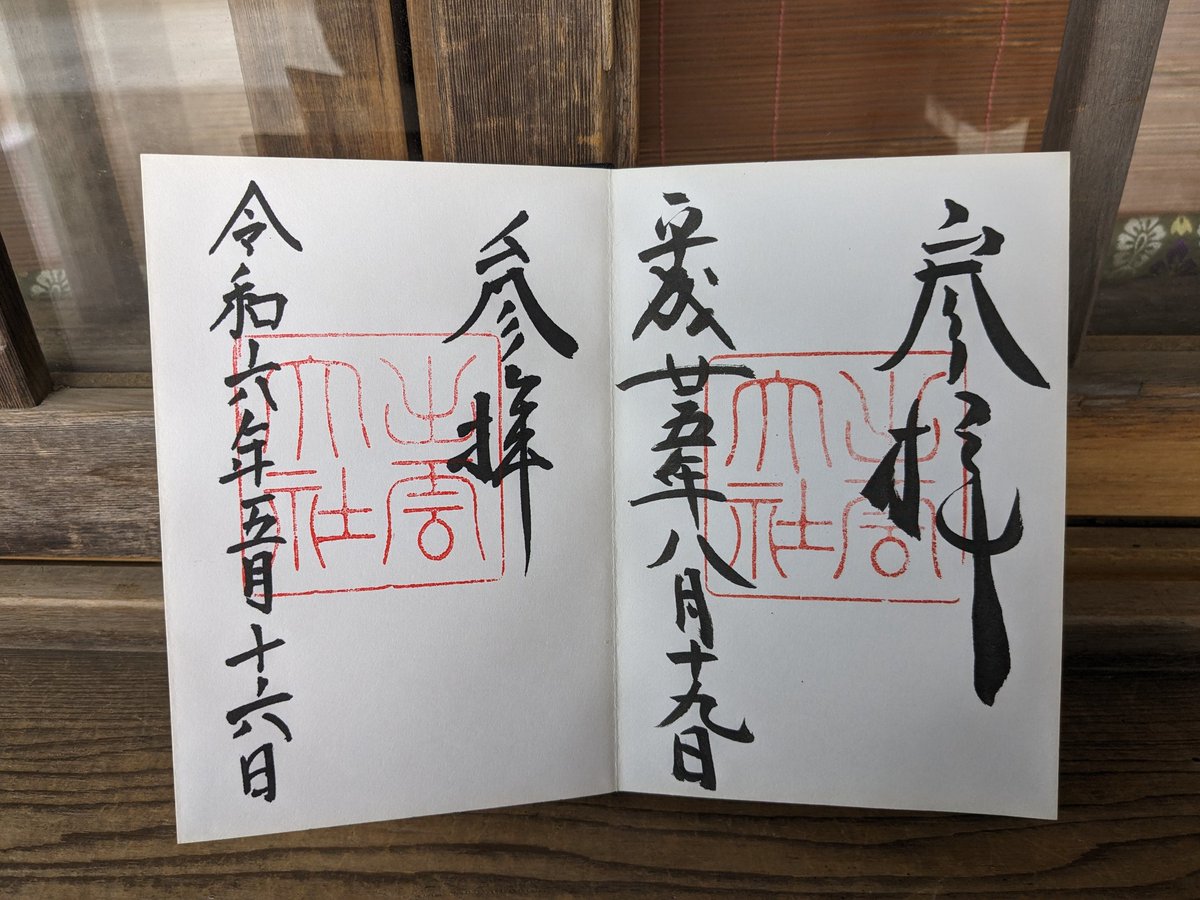 参拝
出雲大社
平成廿五年八月十九日
参拝
出雲大社
令和六年五月十六日